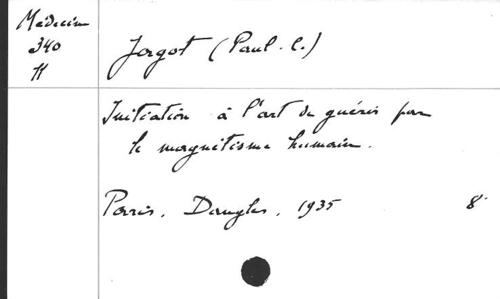 Médecine
340
11
Jagot (Paul. C.)
Initiation à l'art de guérir par
le magnétisme humain.
Paris, Dangles, 1935 8°